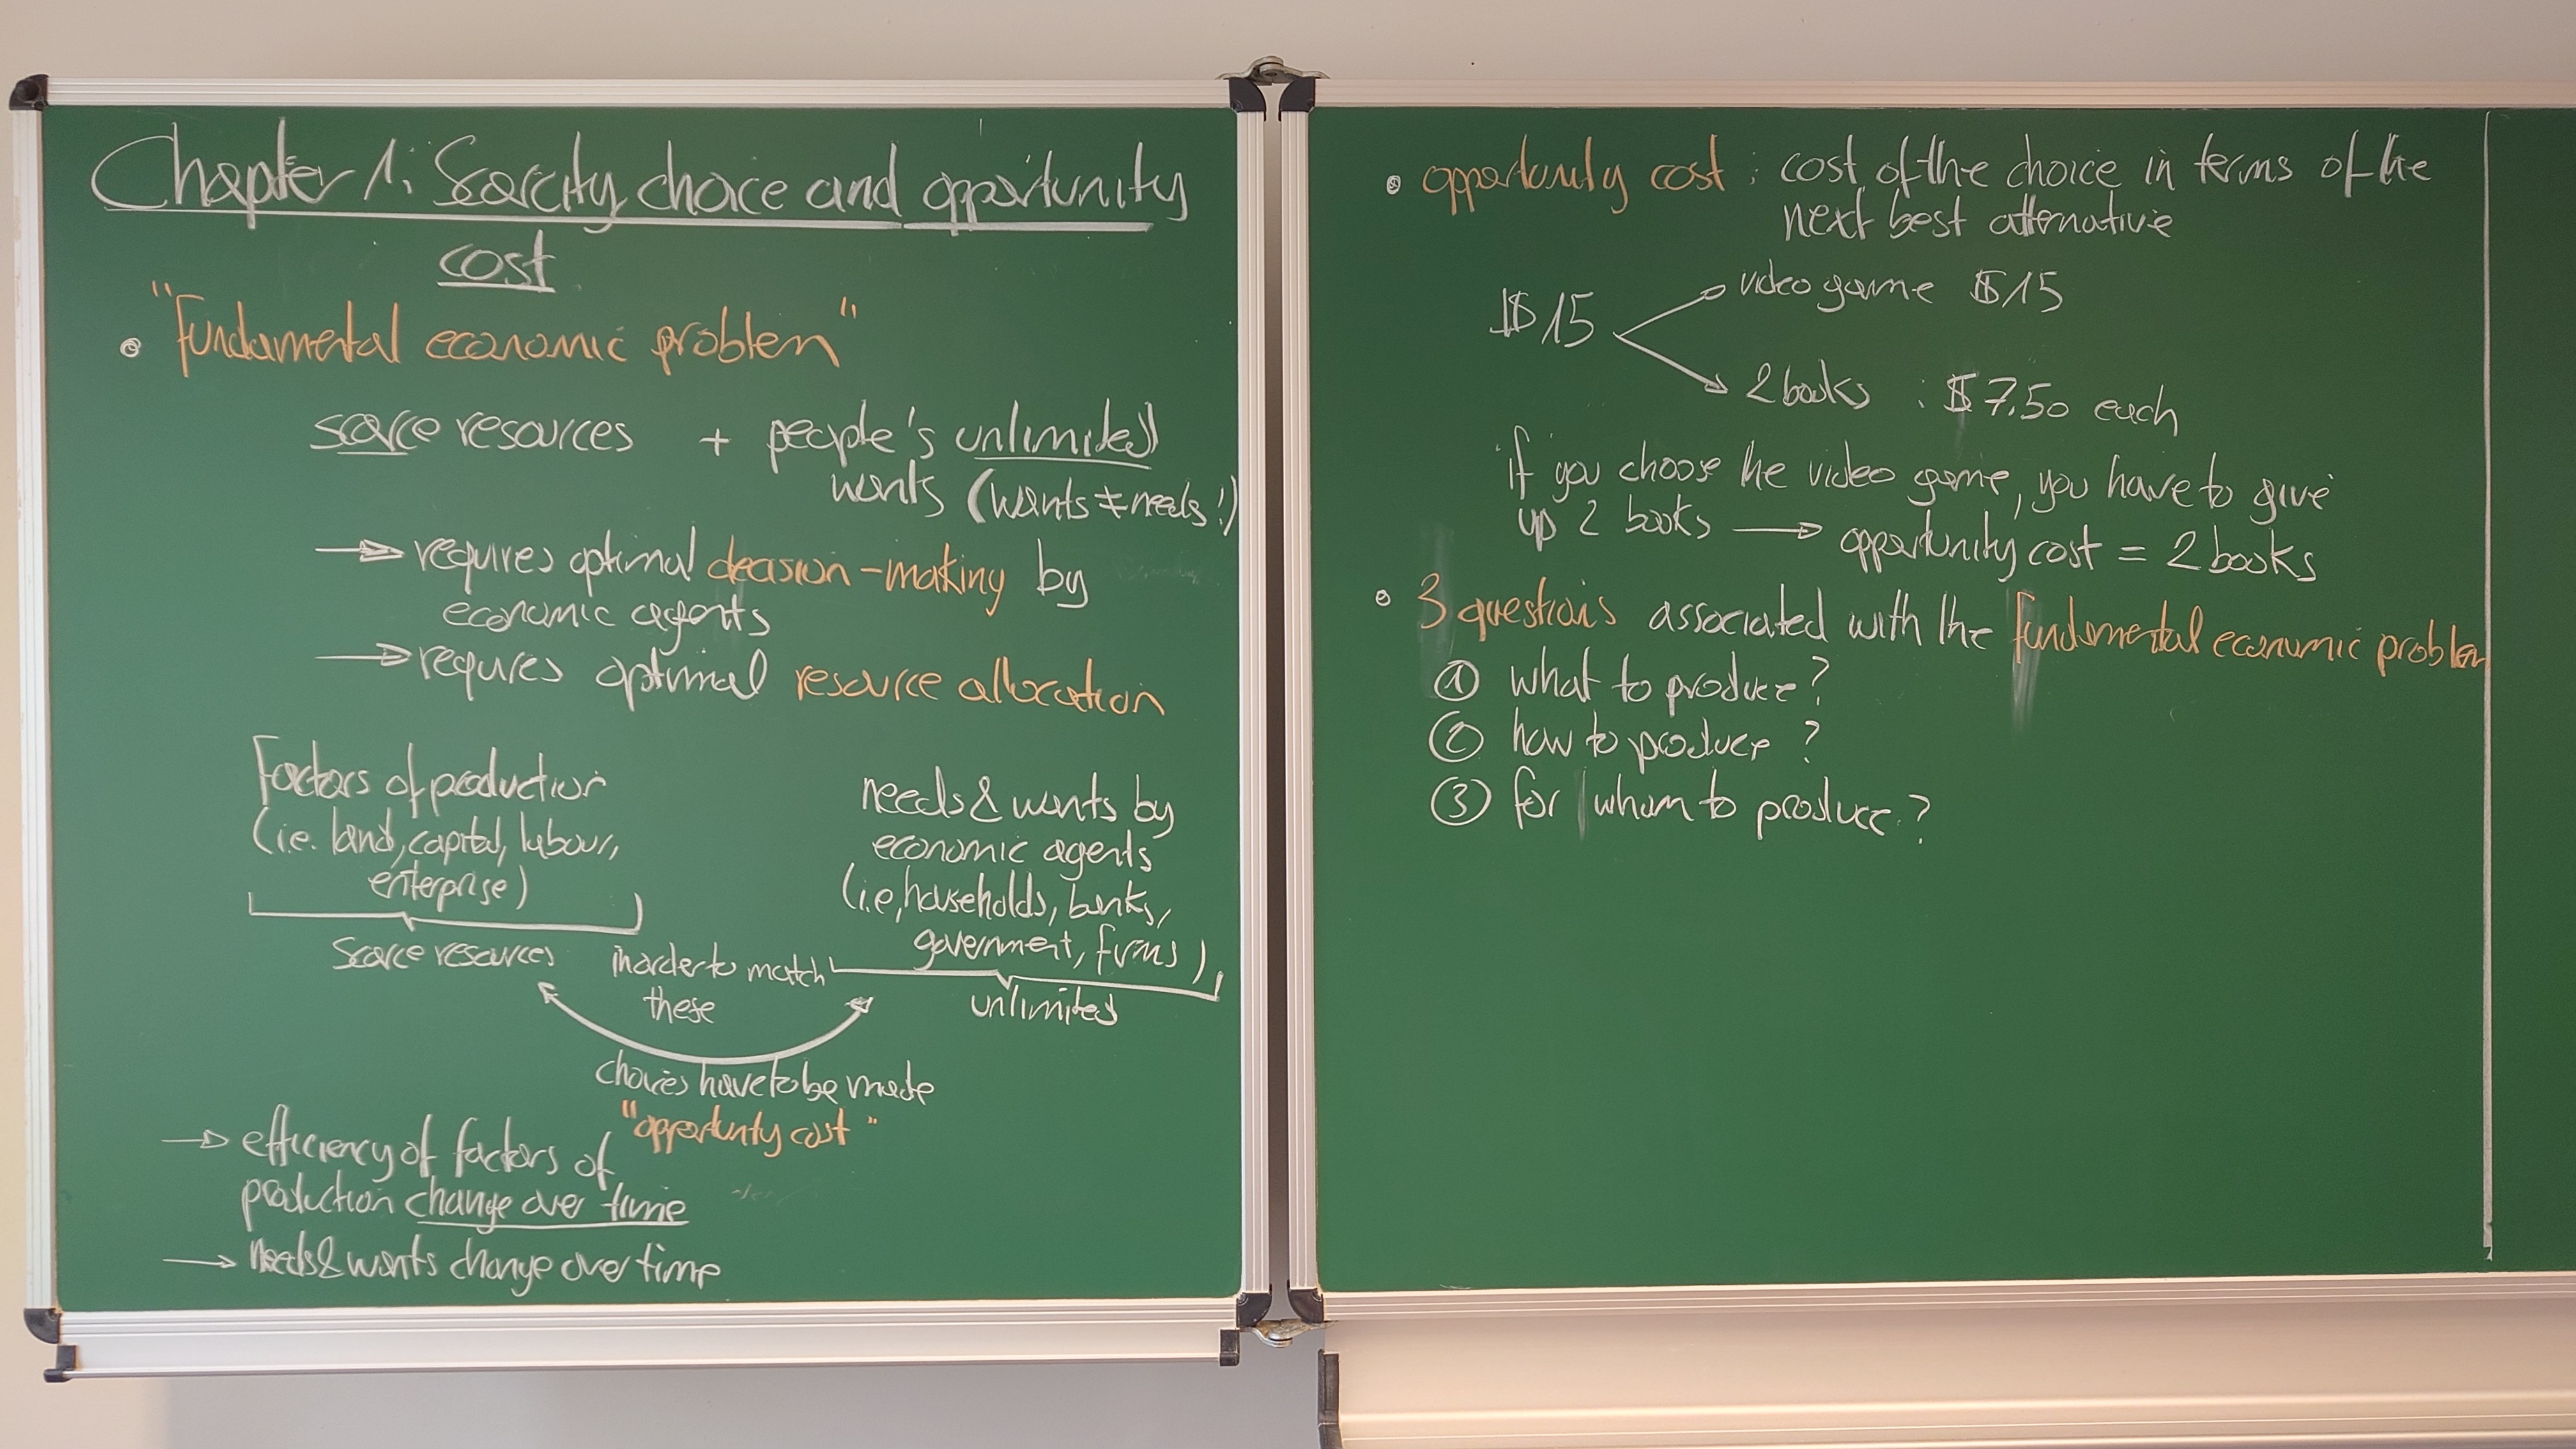 Chapter 1: Scarcity, choice and opportunity
cost
• "Fundamental economic problem"
scarce resources + people's unlimited
wants (wants ≠ needs!)
→ requires optimal decision-making by
economic agents
→ requires optimal resource allocation
Factors of production
(i.e. land, capital, labour,
enterprise)
scarce resources
needs & wants by
economic agents
(i.e, households, banks,
government, firms)
unlimited
in order to match
these
choices have to be made
"opportunity cost"
→ efficiency of factors of
production change over time
→ needs & wants change over time
• opportunity cost : cost of the choice in terms of the
next best alternative
$15
video game $15
2 books : $7.50 each
if you choose the video game, you have to give
up 2 books → opportunity cost = 2 books
• 3 questions associated with the fundamental economic problem
① what to produce?
② how to produce?
③ for whom to produce?